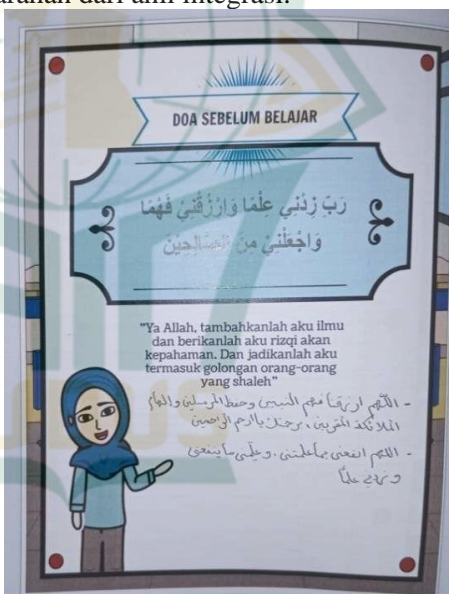 arahan dari ahli integrasi.
DOA SEBELUM BELAJAR
رَبِّ زِدْنِي عِلْمًا وَارْزُقْنِيْ فَهْمًا
وَاجْعَلْنِيْ مِنَ الصَّالِحِيْنَ
"Ya Allah, tambahkanlah aku ilmu
dan berikanlah aku rizqi akan
kepahaman. Dan jadikanlah aku
termasuk golongan orang-orang
yang shaleh"
- اللهم ارزقنا فهم النبيين وحفظ المرسلين والهام
الملائكة المقربين، برحمتك يا ارحم الراحمين
- اللهم انفعنى بما علمتنى، وعلمنى ما ينفعنى
وزدني علماً